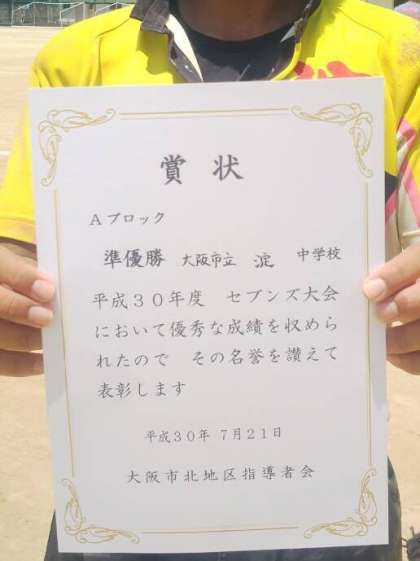 賞状
Aブロック
準優勝 大阪市立 淀 中学校
平成30年度 セブンズ大会
において優秀な成績を収めら
れたので その名誉を讃えて
表彰します
平成30年 7月21日
大阪市北地区指導者会